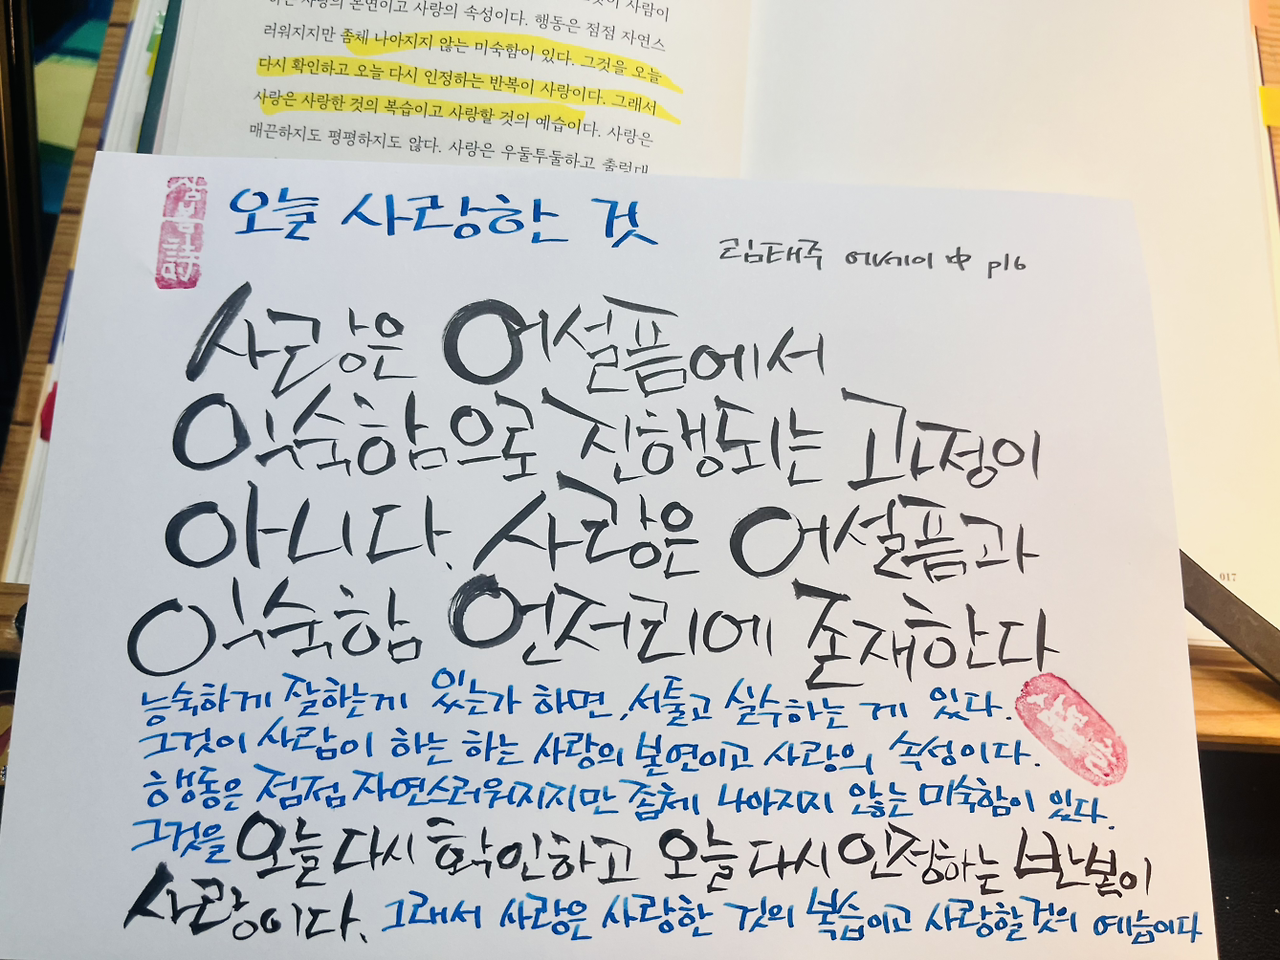 사랑의 본연이고 사랑의 속성이다. 행동은 점점 자연스
러워지지만 좀체 나아지지 않는 미숙함이 있다. 그것을 오늘
다시 확인하고 오늘 다시 인정하는 반복이 사랑이다. 그래서
사랑은 사랑한 것의 복습이고 사랑할 것의 예습이다. 사랑은
매끈하지도 평평하지도 않다. 사랑은 우둘투둘하고 출렁대
오늘 사랑한 것
림태주 에세이 中 p16
사랑은 어설픔에서
익숙함으로 진행되는 과정이
아니다. 사랑은 어설픔과
익숙함 언저리에 존재한다
능숙하게 잘하는게 있는가 하면, 서툴고 실수하는 게 있다.
그것이 사람이 하는 하는 사랑의 본연이고 사랑의 속성이다.
행동은 점점 자연스러워지지만 좀체 나아지지 않는 미숙함이 있다.
그것을 오늘 다시 확인하고 오늘 다시 인정하는 반복이
사랑이다. 그래서 사랑은 사랑한 것의 복습이고 사랑할것의 예습이다
017